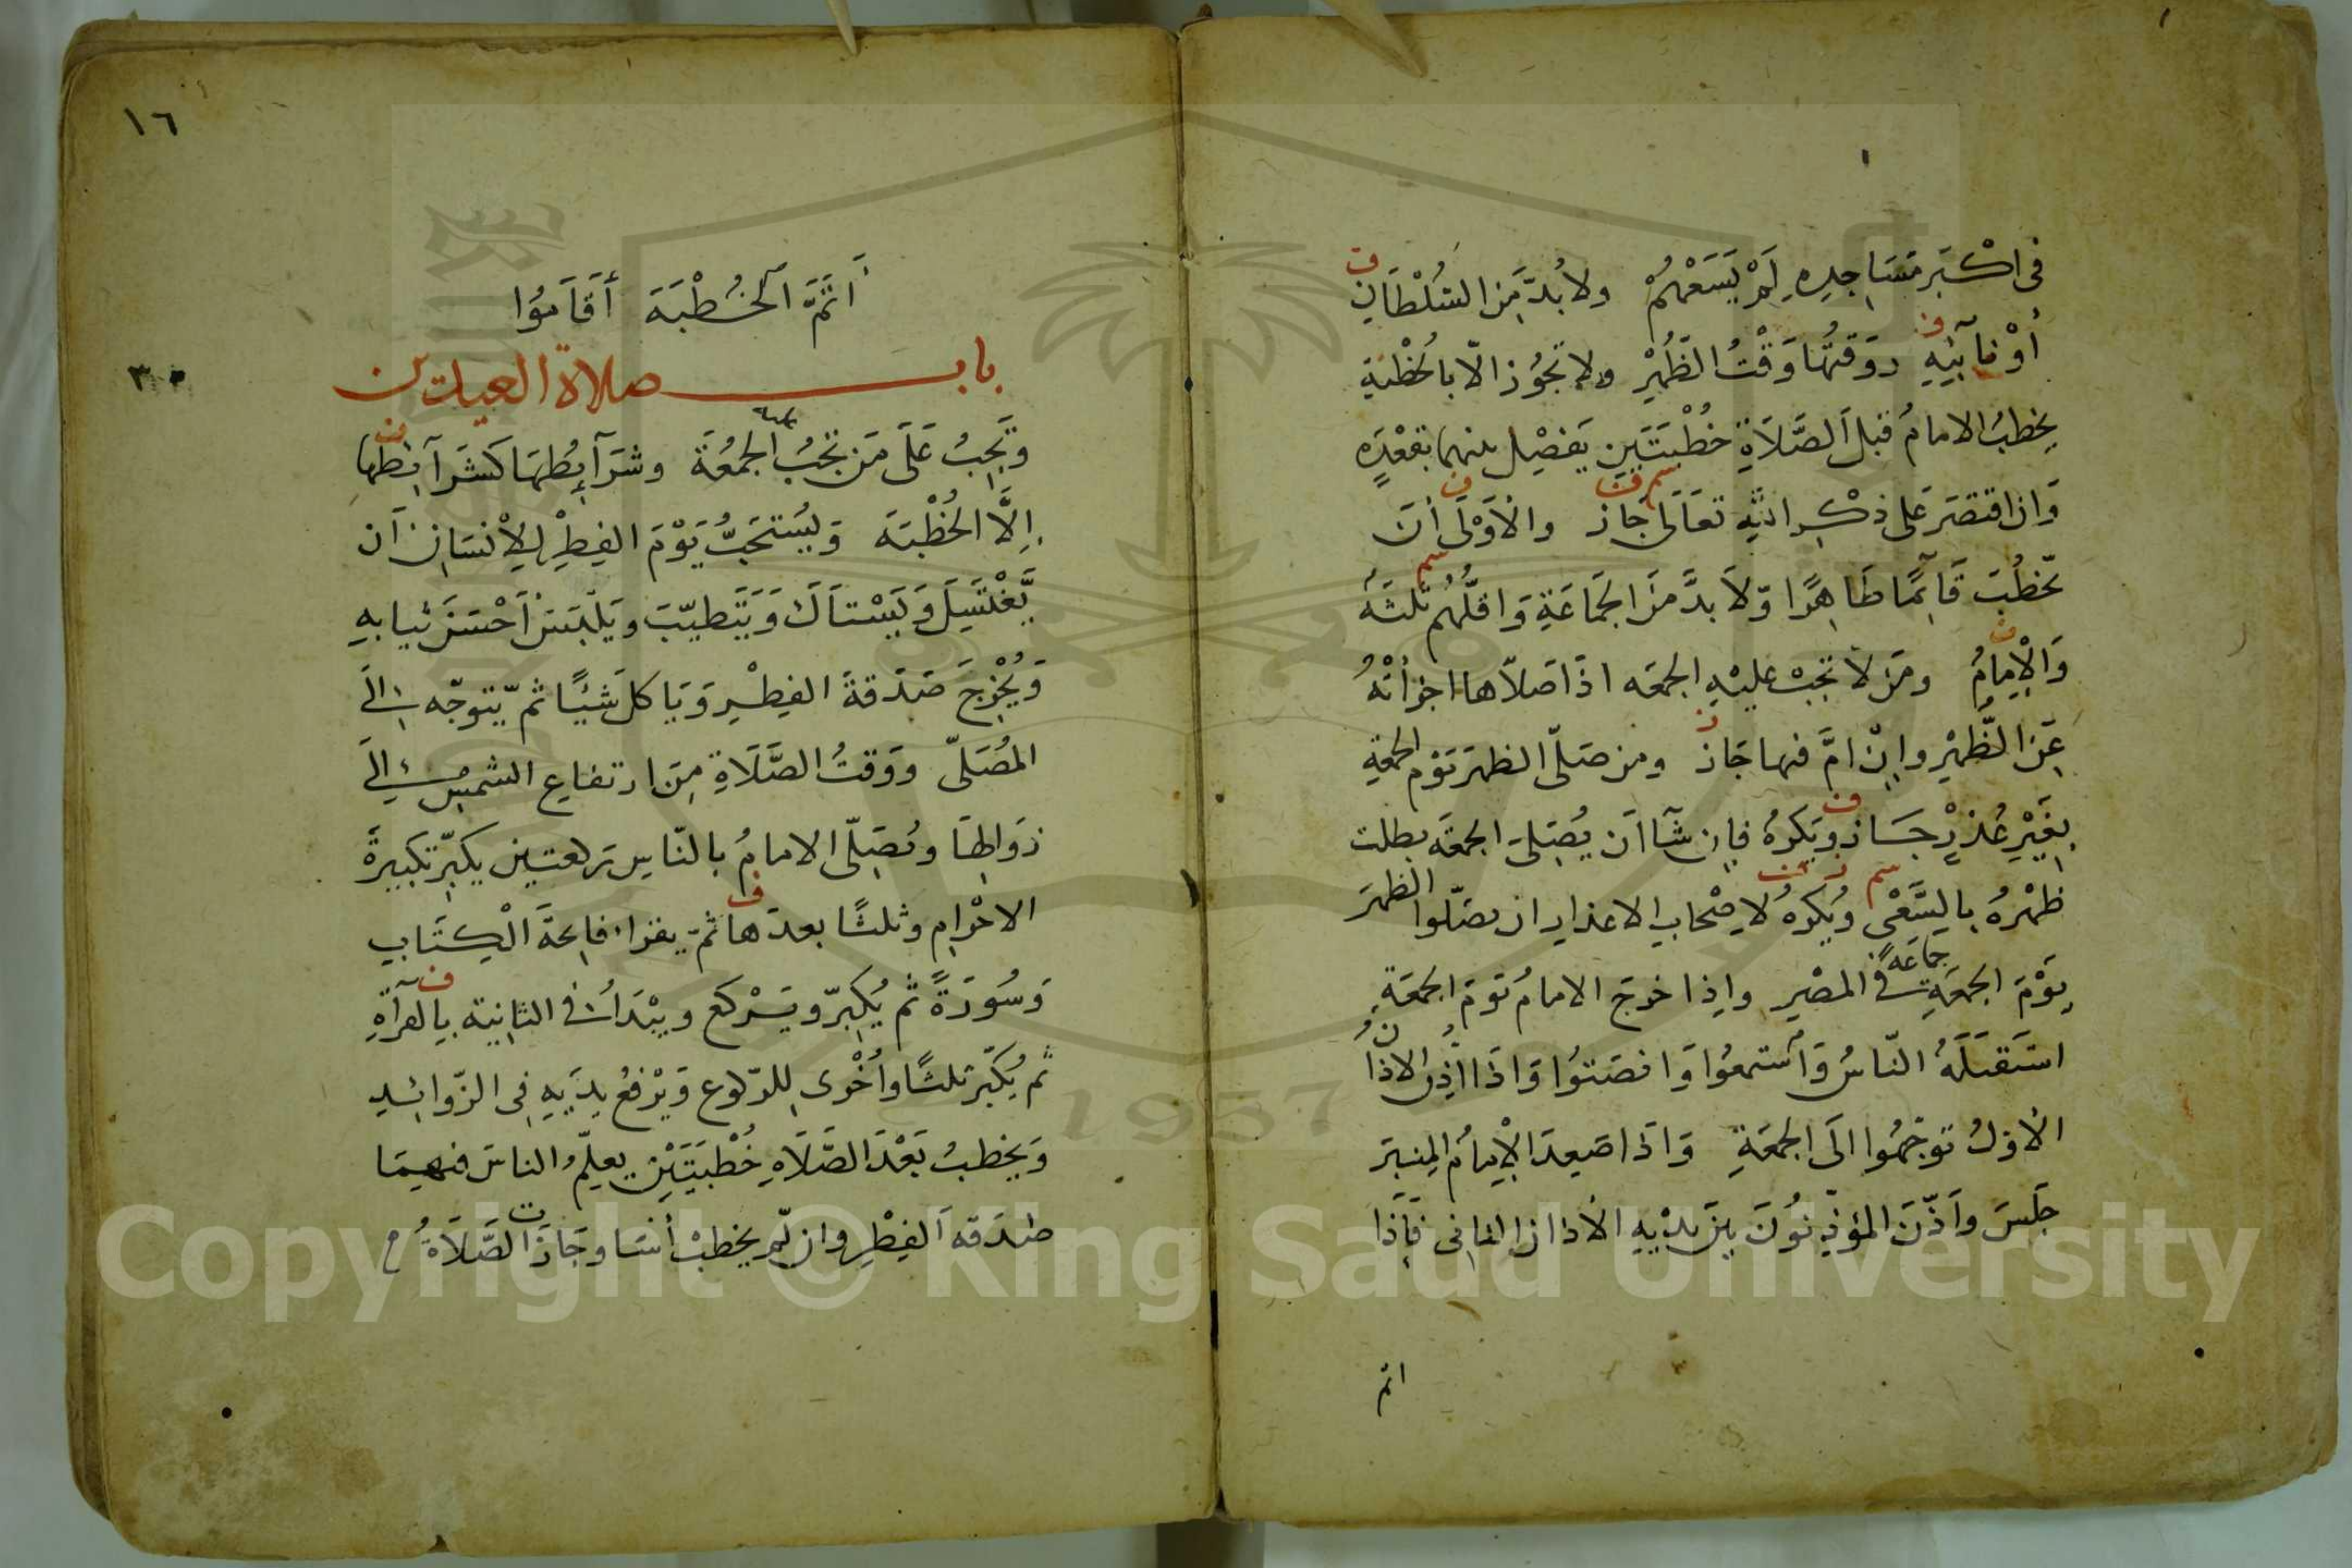 فى اكْبَر مَسَاجِدِهِ لَمْ يَسَعْهُمْ ولا بُدَّ مِنَ السُلْطَانِ
أوْ نآئبِهِ ووَقتُها وَقْتُ الظُهْرِ ولا تجُوُز الاّ بالخُطْبَةِ
يخطبُ الامامُ قبلَ الصَّلَاةِ خُطْبَتَيَنِ يَفصْيل بينهما بقعْدَهٍ
وَان اقتصَرَ عَلى ذكْرِ اللهِ تعَالَى جَازَ والأوْلَى أنَ
يّخطُبَ قَآئمًا طَاهِرًا وّلاَ بدَّ مِنَ الجَمَاعَةِ وَاقلُّهُم ثلثَهُ
وَالإمامُ ومَن لاَ تجبُ عليْهِ الجمعَه اذَا صَلاّها اجزأتْهُ
عَنِ الظُّهْرِ وإنْ امَّ فيها جَازَ ومن صَلّى الظهرَ يَوْم الجمعةِ
بغَيْرِ عُذرٍ جَاز ويَكرهُ فإن شآا أن يُصَلىَ الجمعَه بطلت
ظهْرهُ بالسَّعْىِ ويُكرهُ لاصْحابِ الاعذارِ ان يصَلّوا الظهرَ
يَوْمَ الجمعَةِ جماعَةً فى المصْرِ واذا خرجَ الامامُ يَومَ الجمعَةِ
استَقبَلَهُ النّاسُ وَاستَمعُوا وَانصَتوُا وَاذَا اذّن الاذان
الاوّلُ توجّهُوا الىَ الجمعَةِ وَاذَا صَعِدَ الإمامُ المِنبَرَ
جَلسَ وأذّنَ المؤذّنوُنَ بينَ يدْيهِ الأذان الثانى فَإذَا
اتم
١٦
أتمَّ الخُطْبَةَ أقَاموُا
٣٠
باب صلاة العيدين
وتَجِبُ عَلَى مَن تجَبُ عليه الجمُعَةَ وشرَآئطُهَا كَشَرآئطِها
إلَّا الخُطْبَة وَيُستَحَبُّ يَوْمَ الفِطِرْ لِلإنسَانِ أن
يَّغْتَسِلَ وَيَسْتَاكَ وَيَتَطيّبَ ويَلْبَسَ أَحْسَنَ ثيابهِ
وَيُخْرِجَ صَدَقةَ الفِطْرِ وَيَا كلَ شَيئًا ثمّ يّتوجّه إلَى
المُصَلّى ووَقتُ الصَّلَاةِ مِنَ ارتفاعِ الشمسْ إلىَ
زوَالِهَا ويُصَلّى الامامُ بالنّاسِ ركعتين يكبّر تكبيرةَ
الاحْرام وثلثًا بعدَها ثمّ يقراء فاتحةَ الْكِتَابِ
وَسُورَةً ثم يُكبِرّ ويَرْكع ويبْدَأ فى الثانية بالقرآةِ
ثم يُكبّر ثلثًا وأُخْرى للرّكوع وَيْرفعُ يدَيهِ فى الزّوائدِ
وَيخطبُ بَعْدَ الصَّلَاهِ خُطْبَتَيْنِ يعلّمُ الناسَ فيهما
صَدَقه الفِطْرِ وان لّم يخطبْ أسَا وجَازَ الصَّلَاةُ